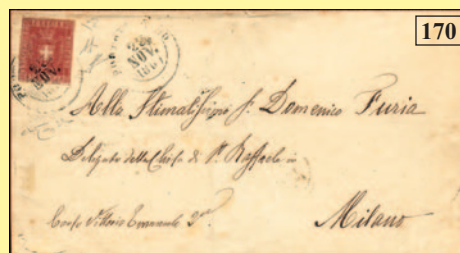 170
22
NOV.
1861
Allo Stimatissimo S. Domenico Furia
Delegato della Chiesa di S. Raffaele in
Corso Vittorio Emanuele
Milano